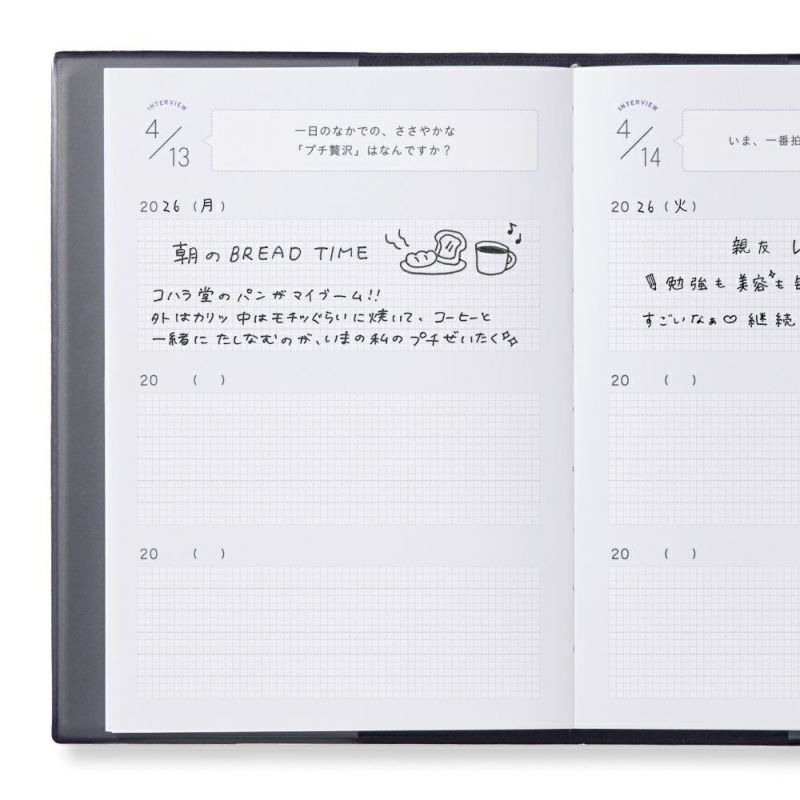 INTERVIEW
4/13
一日のなかでの、ささやかな
「プチ贅沢」はなんですか？
2026(月)
朝のBREAD TIME
コハラ堂のパンがマイブーム!!
外はカリッ中はモチッぐらいに焼いて、コーヒーと
一緒にたしなむのが、いまの私のプチぜいたく
20 ( )
20 ( )
INTERVIEW
4/14
いま、一番
2026(火)
親友
勉強も美容も
すごいなぁ♡継続
20 ( )
20 ( )